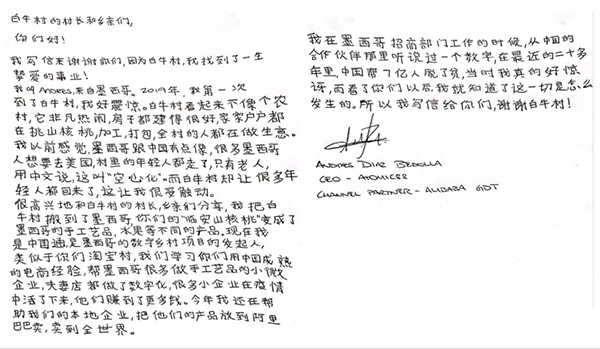 白牛村的村长和乡亲们，
你们好！
我写信来谢谢你们，因为白牛村，我找到了一生
挚爱的事业！
我叫Andres，来自墨西哥。2019年，我第一次
到了白牛村，我好震惊。白牛村看起来不像个农
村，它非凡热闹，房子都建得很好，家家户户都
在挑山核桃，加工，打包，全村的人都在做生意。
我以前感觉，墨西哥跟中国有点像，很多墨西哥
人想要去美国，村里的年轻人都走了，只有老人，
用中文说，这叫"空心化"。而白牛村却让很多年
轻人都回来了，这让我很受触动。
很高兴地和白牛村的村长，乡亲们分享，我把白
牛村搬到了墨西哥，你们的"临安山核桃"变成了
墨西哥的手工艺品，水果等不同的产品。现在我
是中国通，是墨西哥的数字乡村项目的发起人，
类似于你们淘宝村，我们学习你们用中国成熟
的电商经验，帮墨西哥很多做手工艺品的小微
企业，夫妻店都做了数字化，很多小企业在疫情
中活了下来，他们赚到了更多钱。今年我还在帮
助我们的本地企业，把他们的产品放到阿里
巴巴卖，卖到全世界。
我在墨西哥招商部门工作的时候，从中国的
合作伙伴那里听说过一个数字，在最近的二十多
年里，中国帮7亿人脱了贫，当时我真的好惊
讶，而看了你们以后我就知道了这一切是怎么
发生的。所以我写信给你们，谢谢白牛村！
ANDRES DIAZ BEDOLLA
CEO - ATOMIC88
CHANNEL PARTNER - ALIBABA GDT